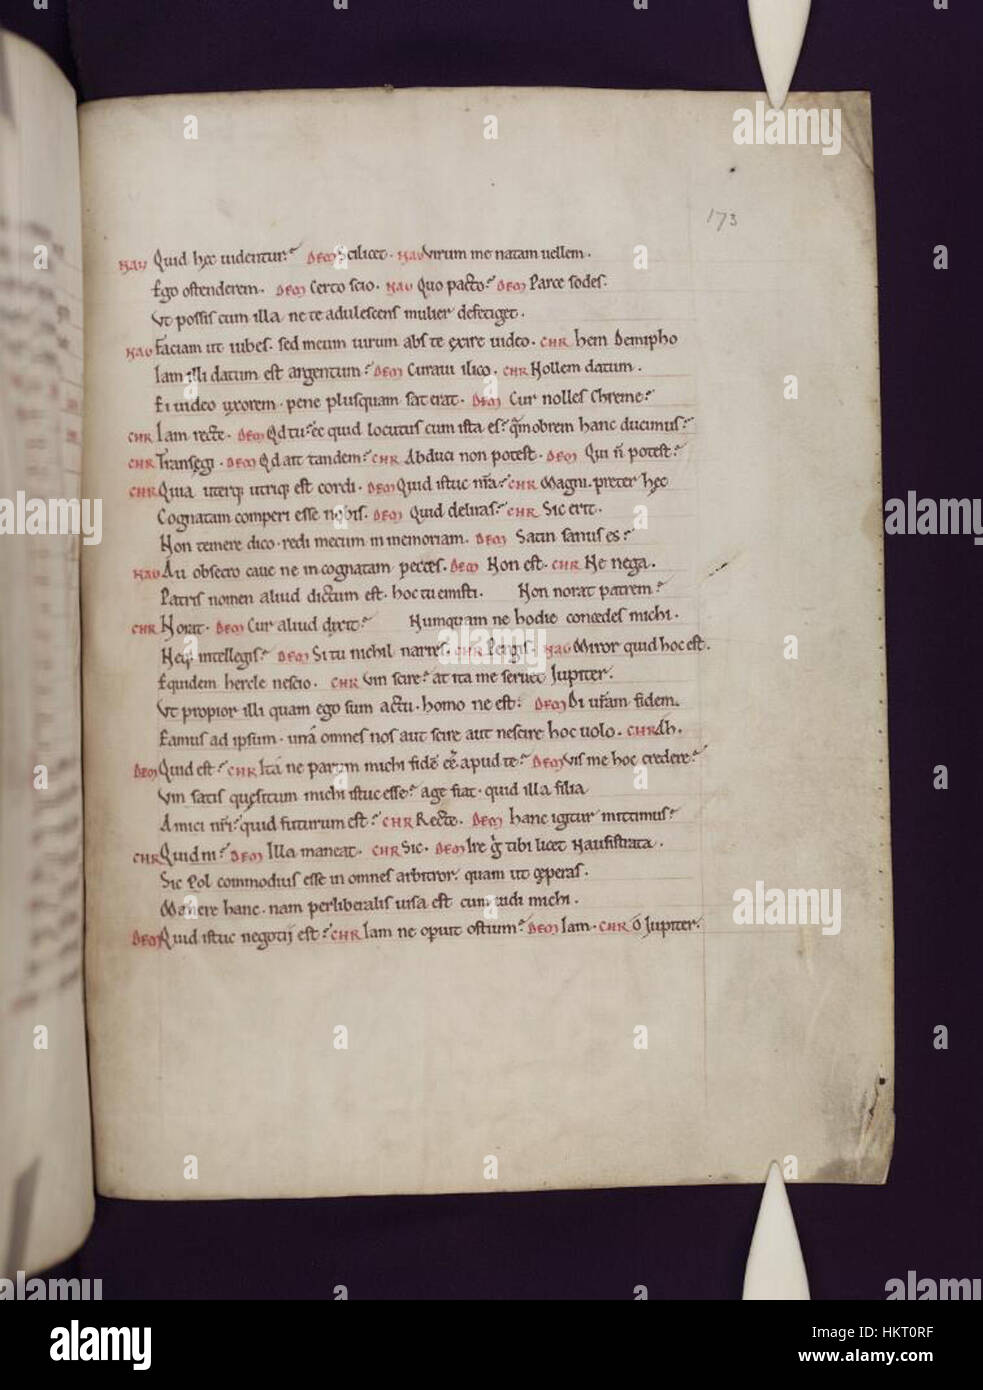 173
NAU Quid hec uidentur? DEM Scilicet. NAU Virum me natam uellem.
Ego ostenderem. DEM Certo scio. NAU Quo pacto? DEM Parce sodes.
Vt possis cum illa ne te adulescens mulier defetiget.
NAU Faciam ut iubes. sed meum uirum abs te exire uideo. CHR hem Demipho
Iam illi datum est argentum? DEM Curaui ilico. CHR Nollem datum.
Ei uideo uxorem. pene plusquam sat erat. DEM Cur nolles Chreme?
CHR Iam recte. DEM Qd tu? ec quid locutus cum ista es? qmobrem hanc ducimus?
CHR Transegi. DEM Qd ait tandem? CHR Abduci non potest. DEM Qui n potest?
CHR Quia uterq utriq est cordi. DEM Quid istuc nra? CHR Magni. preter hec
Cognatam comperi esse nobis. DEM Quid deliras? CHR Sic erit.
Non temere dico. redi mecum in memoriam. DEM Satin sanus es?
NAU Au obsecro caue ne in cognatam pecces. DEM Non est. CHR Ne nega.
Patris nomen aliud dictum est. hoc tu emisti. Non norat patrem?
CHR Norat. DEM Cur aliud dixit? Numquam ne hodie concedes michi.
Neq intellegis? DEM Si tu nichil narres. CHR Pergis. NAU Miror quid hoc est.
Equidem hercle nescio. CHR Vin scire? at ita me seruet Jupiter.
Vt propior illi quam ego sum actu. homo ne est? DEM Di uram fidem.
Eamus ad ipsum. una omnes nos aut scire aut nescire hoc uolo. CHR Ah.
DEM Quid est? CHR Ita ne parum michi fide ee apud te? DEM Vis me hoc credere?
Vin satis quesitum michi istuc esse? age fiat. quid illa filia
Amici nri? quid futurum est? CHR Recte. DEM hanc igitur mittimus?
CHR Quid ni? DEM Illa maneat. CHR Sic. DEM Ire g tibi licet Nausistrata.
Sic Pol commodius esse in omnes arbitror. quam ut ceperas.
Manere hanc. nam perliberalis uisa est cum uidi michi.
DEM Quid istuc negotij est? CHR Iam ne operuit ostium? DEM Iam. CHR O Jupiter.
alamy
Image ID: HKT0RF
www.alamy.com